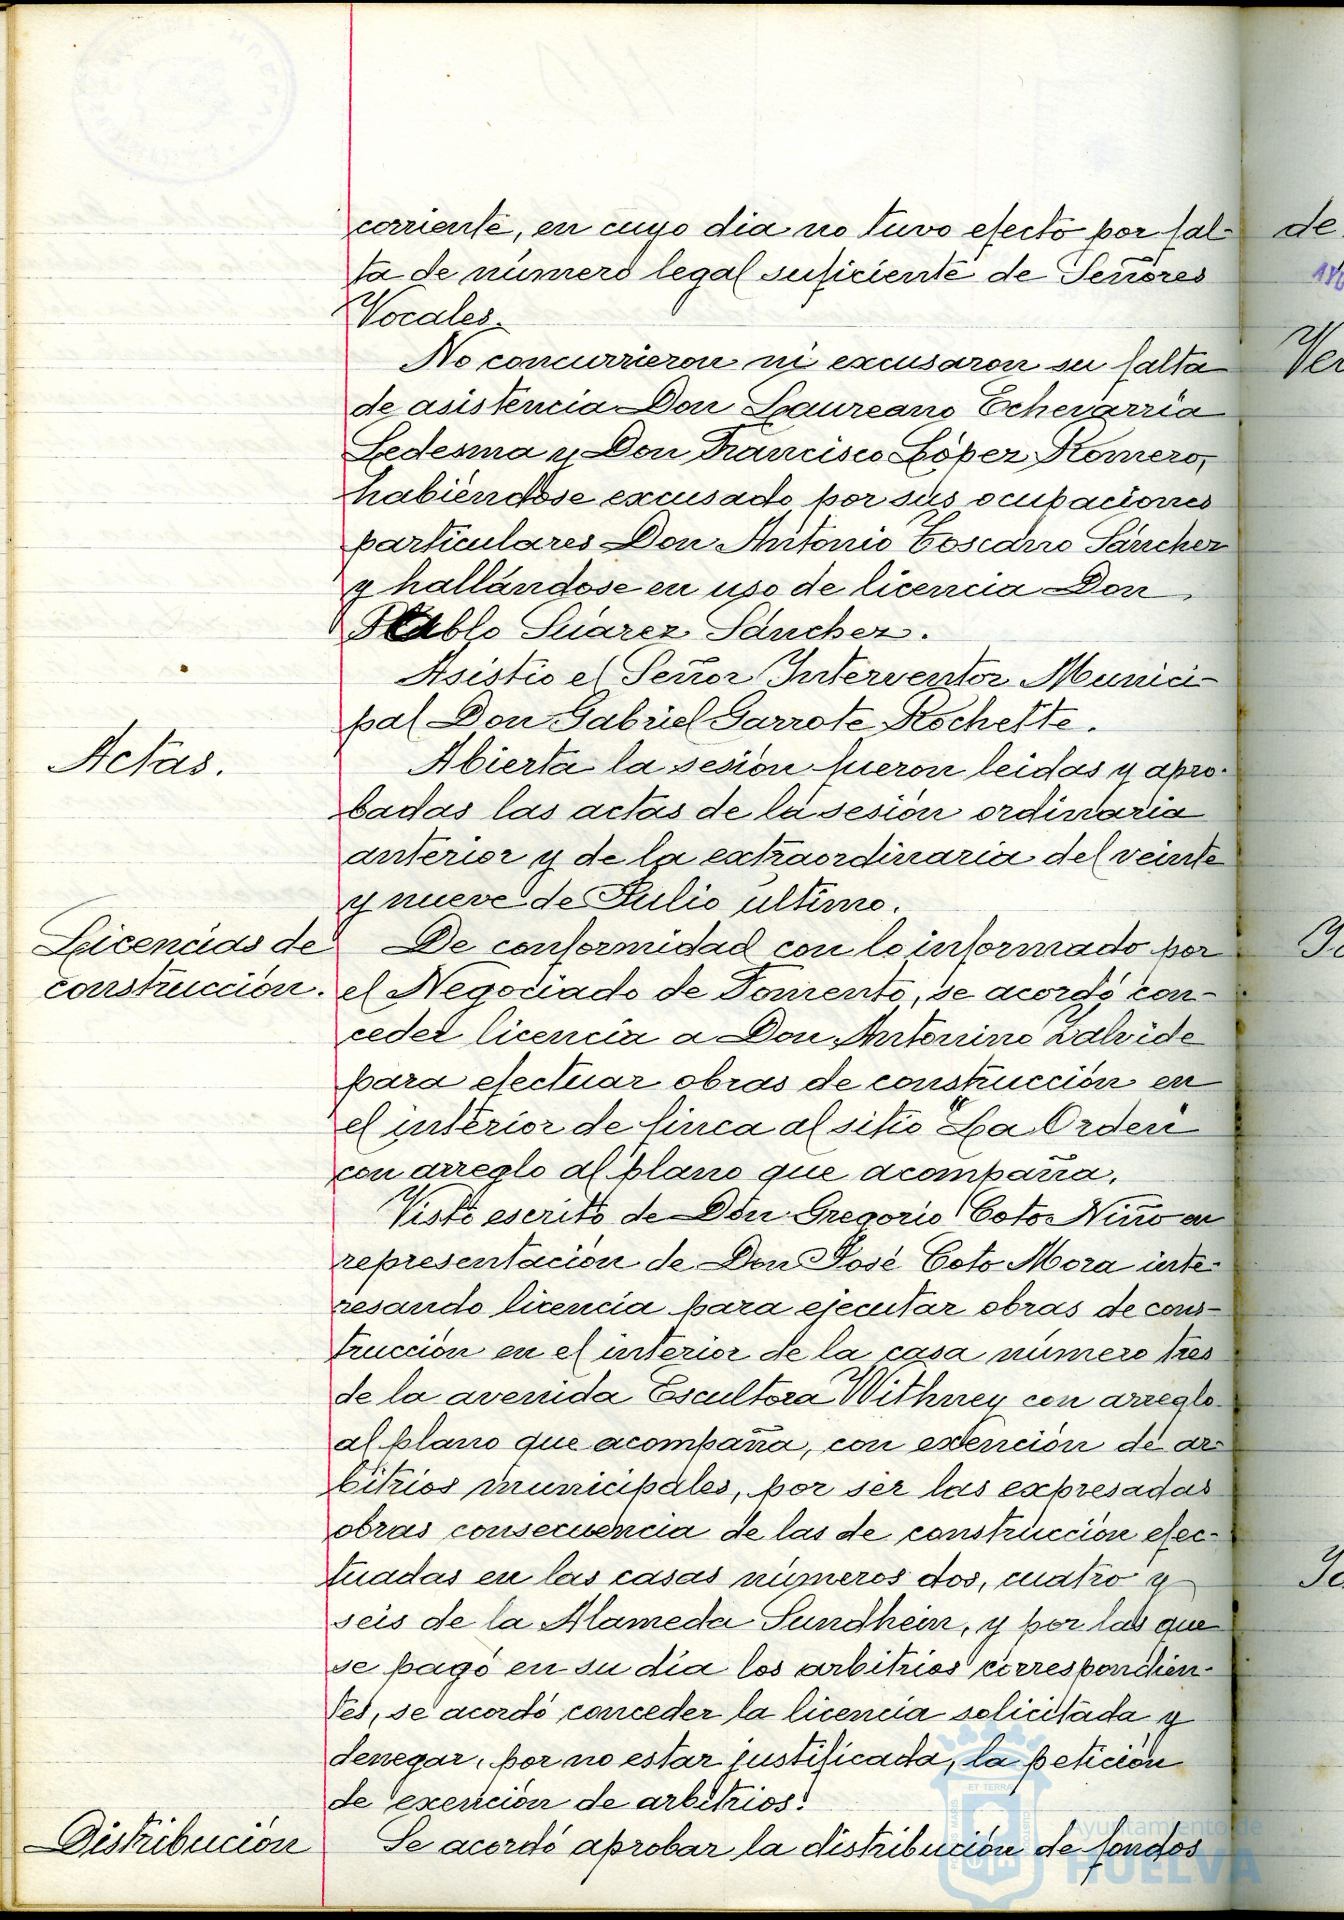 corriente, en cuyo dia no tuvo efecto por fal-
ta de número legal suficiente de Señores
Vocales.
No concurrieron ni excusaron su falta
de asistencia Don Laureano Echevarria
Ledesma y Don Francisco López Romero,
habiéndose excusado por sus ocupaciones
particulares Don Antonio Toscano Sánchez
y hallándose en uso de licencia Don
Pablo Suárez Sánchez.
Asistió el Señor Interventor Munici-
pal Don Gabriel Garrote Rochette.
Actas.
Abierta la sesión fueron leidas y apro-
badas las actas de la sesión ordinaria
anterior y de la extraordinaria del veinte
y nueve de Julio último.
Licencias de
construcción.
De conformidad con lo informado por
el Negociado de Fomento, se acordó con-
ceder licencia a Don Antonino Zalvide
para efectuar obras de construcción en
el interior de finca al sitio "La Orden"
con arreglo al plano que acompaña.
Visto escrito de Don Gregorio Coto Niño en
representación de Don José Coto Mora inte-
resando licencia para ejecutar obras de cons-
trucción en el interior de la casa número tres
de la avenida Escultora Withney con arreglo
al plano que acompaña, con exención de ar-
bitrios municipales, por ser las expresadas
obras consecuencia de las de construcción efec-
tuadas en las casas números dos, cuatro y
seis de la Alameda Sundhein, y por las que
se pagó en su día los arbitrios correspondien-
tes, se acordó conceder la licencia solicitada y
denegar, por no estar justificada, la petición
de exención de arbitrios.
Distribución
Se acordó aprobar la distribución de fondos
de
Ver
Ayuntamiento de
HUELVA